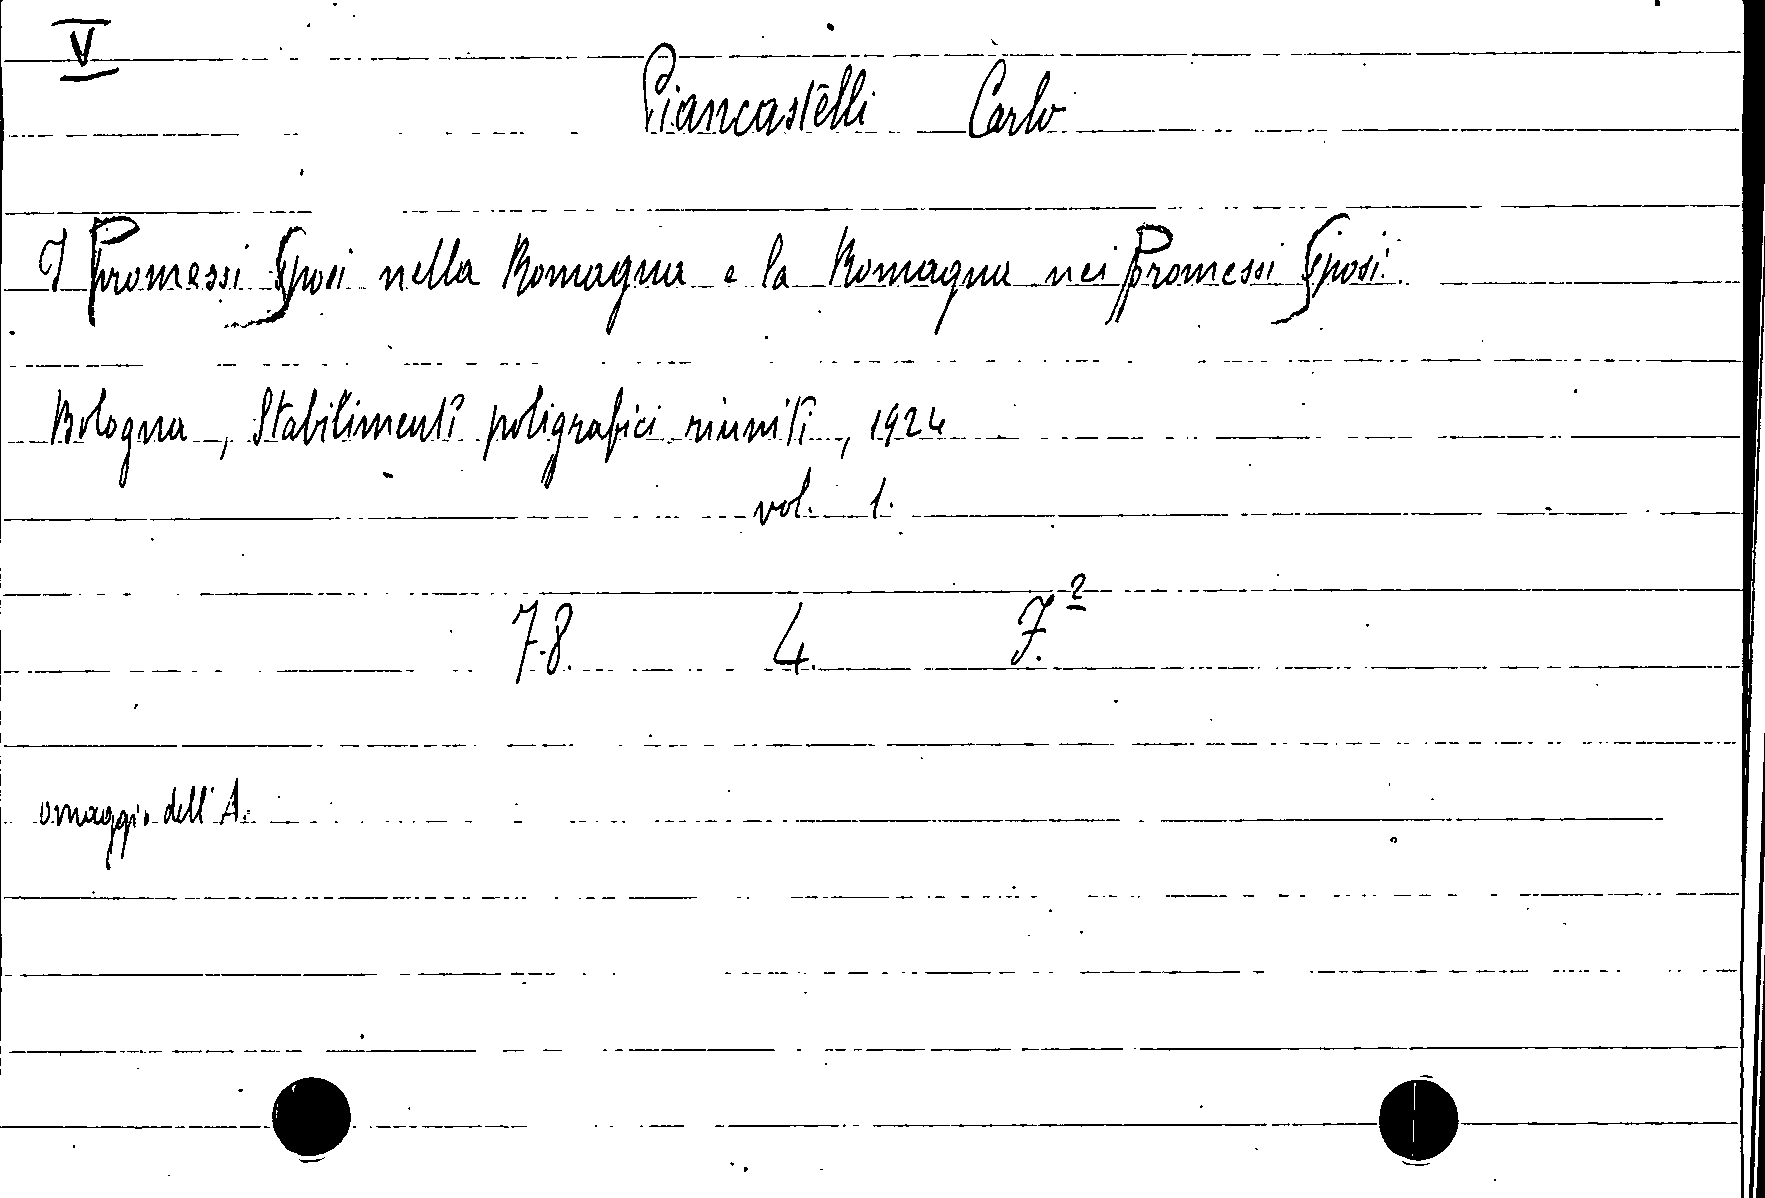 V
Piancastelli Carlo
I Promessi Sposi nella Romagna e la Romagna nei Promessi Sposi.
Bologna, Stabilimenti poligrafici riuniti, 1924
vol. 1.
78. 4. 7.²
omaggio dell'A.